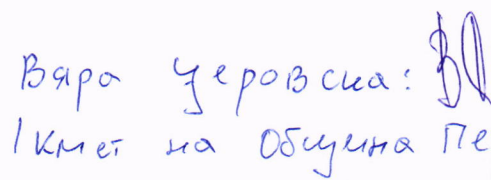 Вяра Церовска:
/Кмет на Община Пе